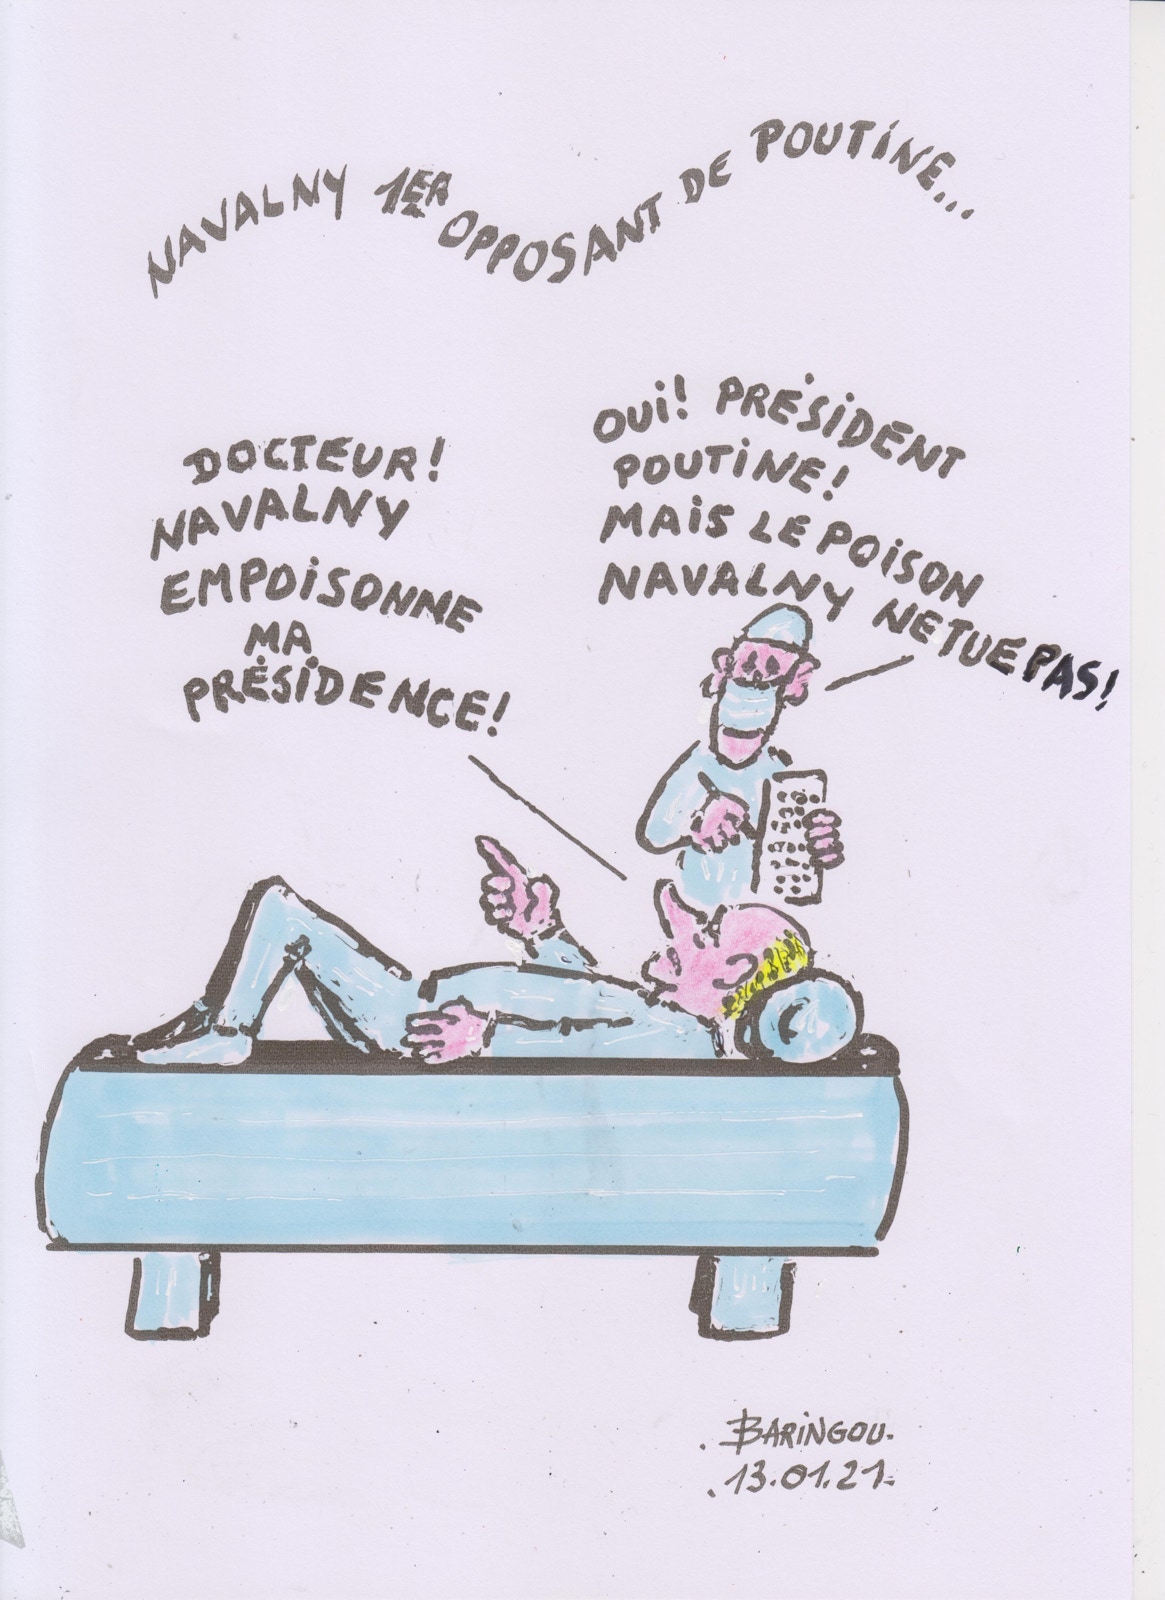 NAVALNY 1ER OPPOSANT DE POUTINE...
DOCTEUR!
NAVALNY
EMPOISONNE
MA
PRÉSIDENCE!
OUI! PRÉSIDENT
POUTINE!
MAIS LE POISON
NAVALNY NE TUE PAS!
BARINGOU.
.13.01.21.